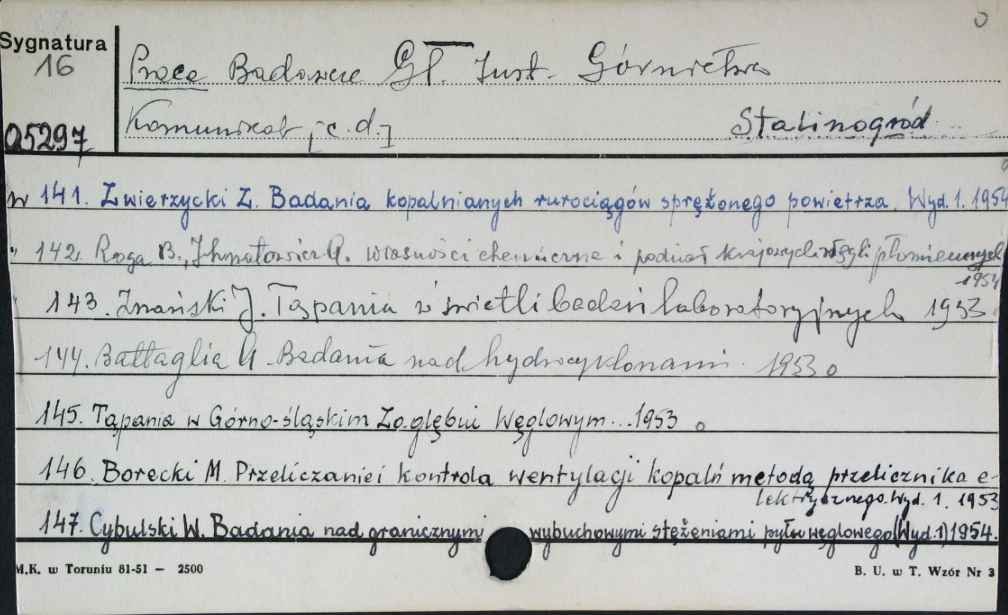 Sygnatura
16
05297
Prace Badawcze Gł. Inst. Górnictwa
Komunikat [c.d.] Stalinogród
w 141. Zwierzycki Z. Badania kopalnianych rurociągów sprężonego powietrza. Wyd. 1. 1954
" 142. Roga B., Ihnatowicz A. Własności chemiczne i podział krajowych węgli płomiennych
1954
143. Znański J. Tąpania w świetle badań laboratoryjnych 1953
144. Battaglia A. Badania nad hydrocyklonami. 1953
145. Tąpania w Górno-śląskim Zagłębiu Węglowym...1953
146. Borecki M. Przeliczanie i kontrola wentylacji kopalń metodą przelicznika e-
lektrycznego. Wyd. 1. 1953
147. Cybulski W. Badania nad granicznymi wybuchowymi stężeniami pyłu węglowego (Wyd. 1) 1954.
M.K. w Toruniu 81-51 — 2500 B. U. w T. Wzór Nr 3